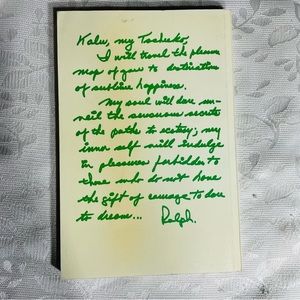 Kalu, my
I will travel the pleasure
map of you to destination
of sublime happiness.
My soul will dare un-
veil the sensuous secrets
of the paths to ecstasy; my
inner self will indulge
in pleasures forbidden to
those who do not have
the gift of courage to dare
to dream... Ralph.